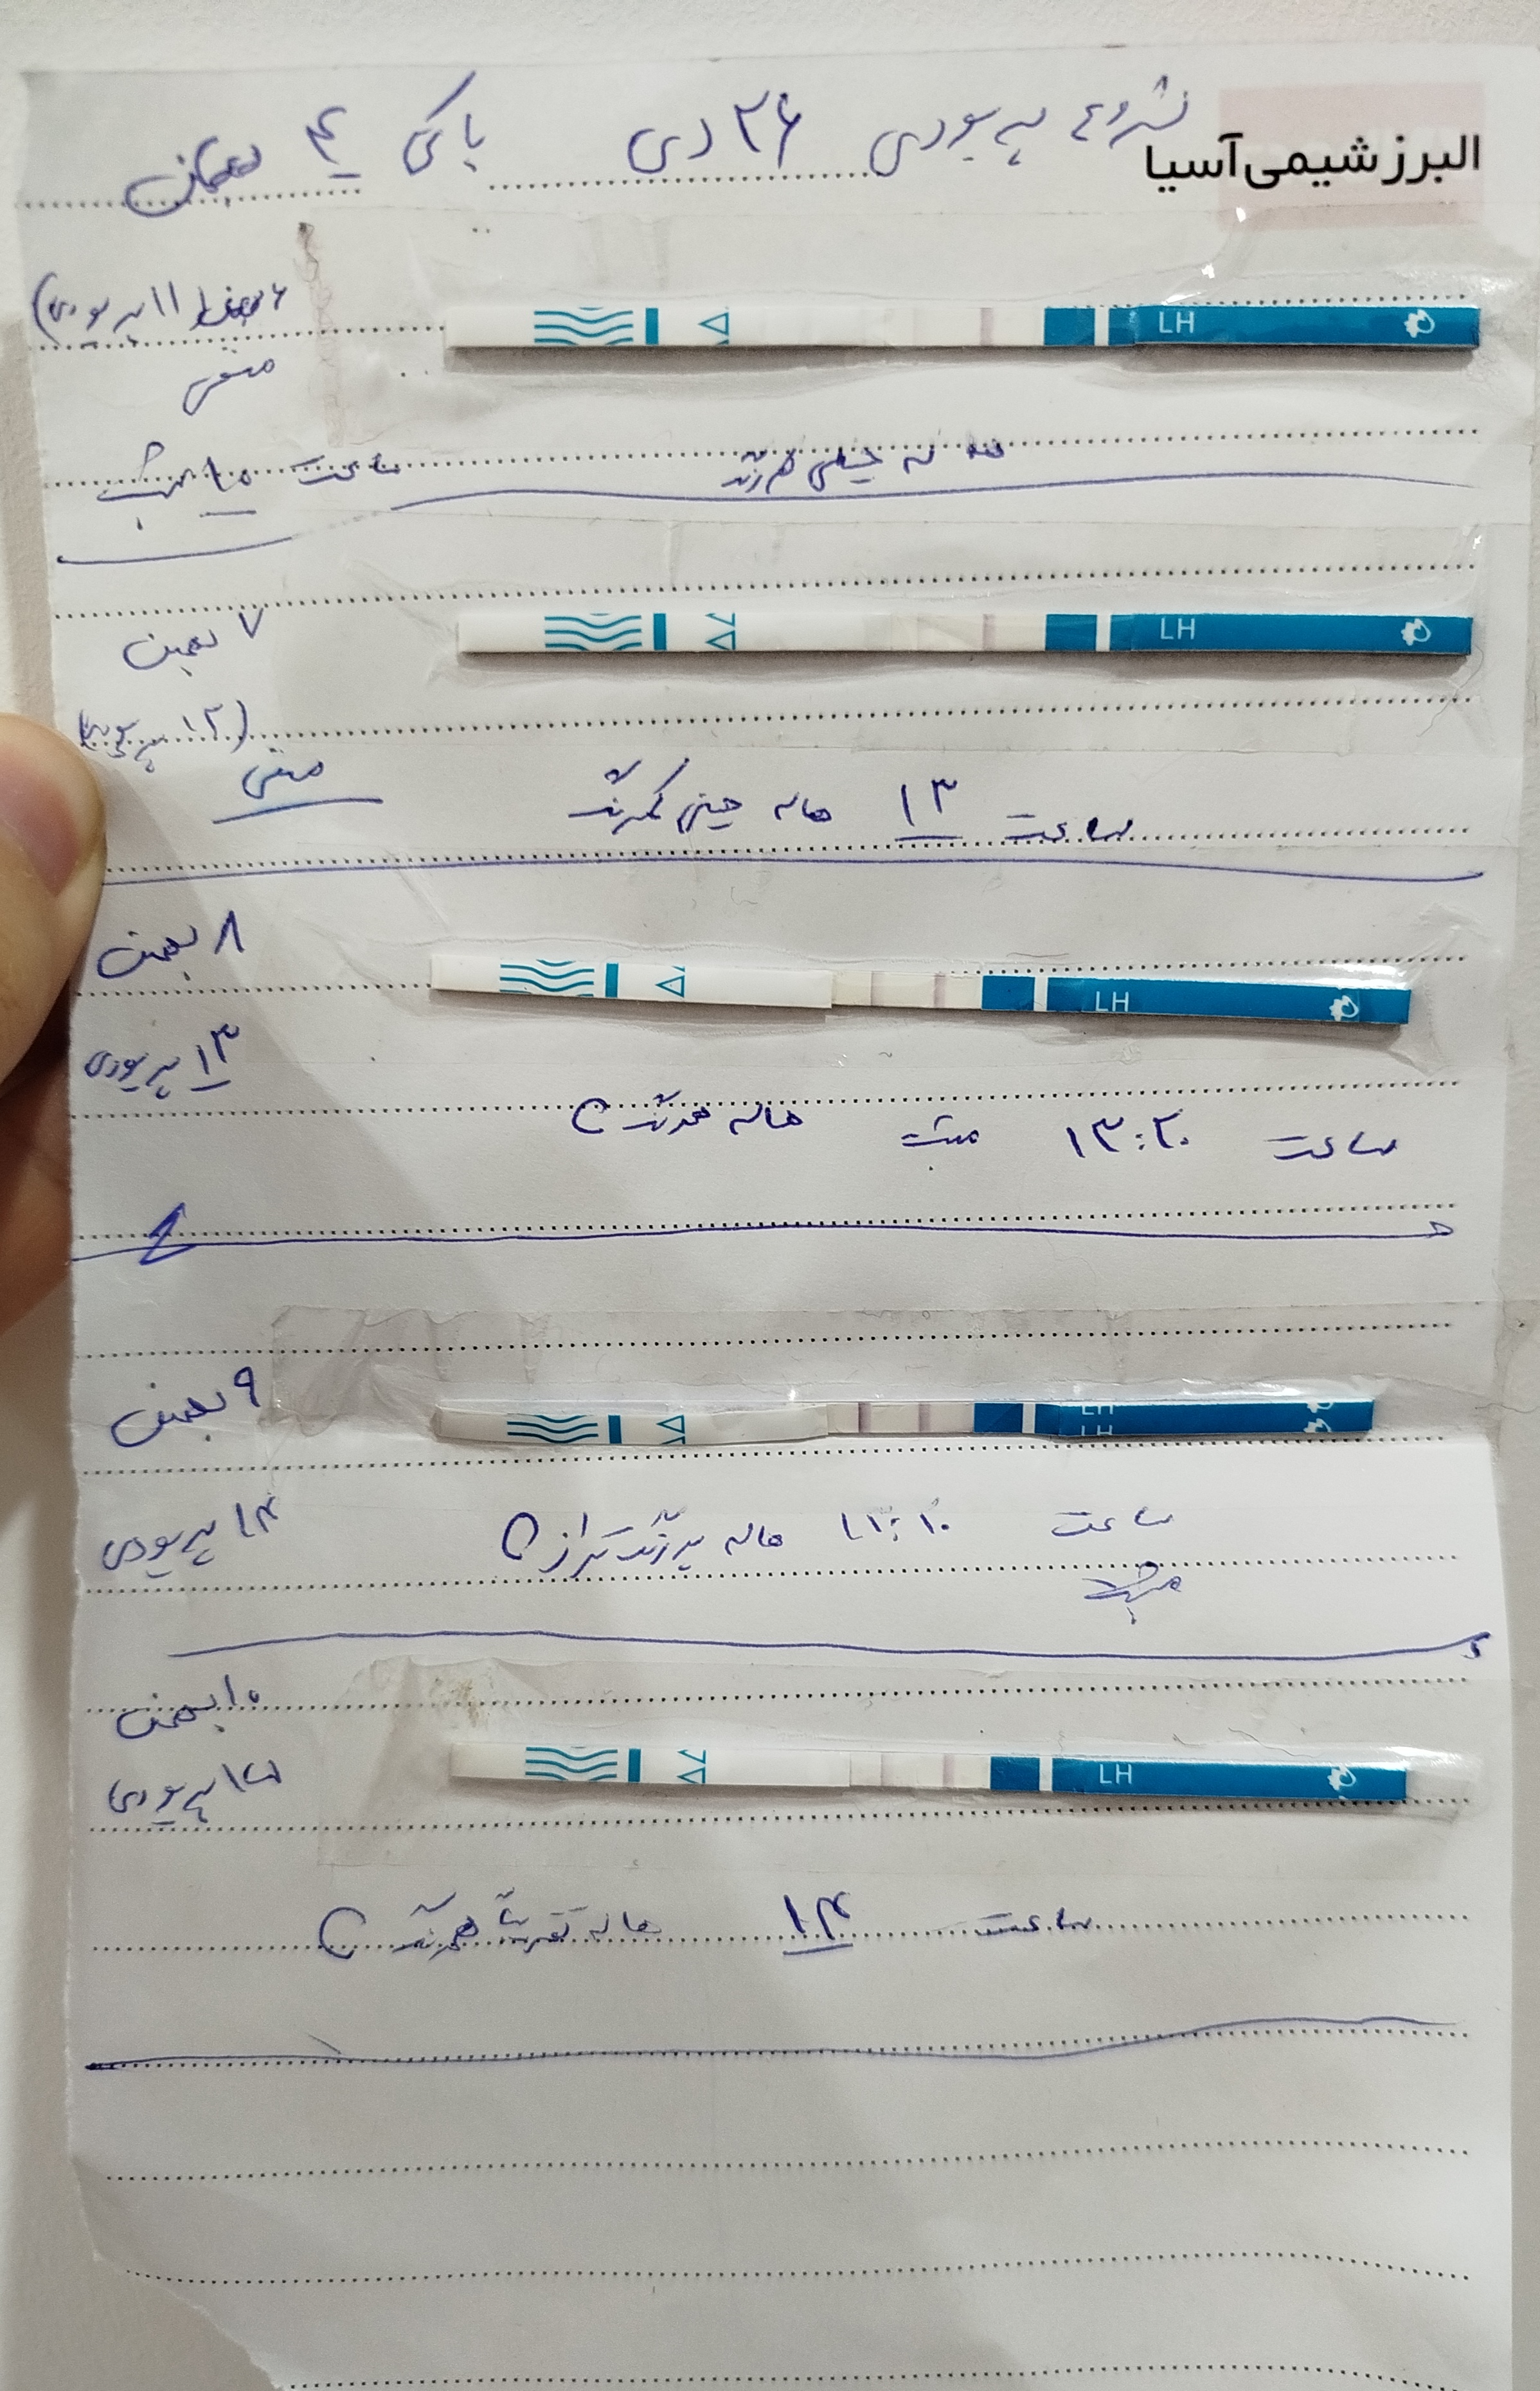 البرز شیمی آسیا
شروع پریودی ۲۶ دی پاکی ۴ بهمن
LH
۶ بهمن (۱۱ پریودی)
منفی
هاله خیلی کمرنگ ساعت ۱۰ شب
LH
۷ بهمن
(۱۲ پریودی)
منفی
ساعت ۱۳ هاله خیلی کمرنگ
LH
۸ بهمن
۱۳ پریودی
ساعت ۱۳:۲۰ مثبت هاله همرنگ C
LH
LH
۹ بهمن
۱۴ پریودی
ساعت ۱۱:۱۰ هاله پررنگ تر از C
مثبت
۱۰ بهمن
LH
۱۵ پریودی
ساعت ۱۴ هاله تقریبا همرنگ C